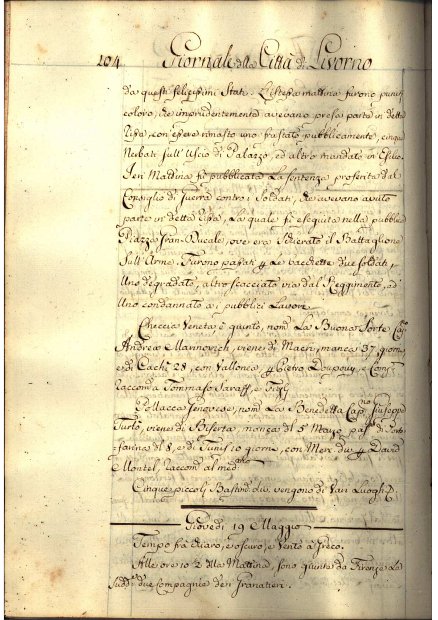 204 Giornale della Città di Livorno
da questi felicissimi Stati. L'istessa mattina furono puniti
coloro, che imprudentemente avevano presa parte in detta
rissa, con essere rimasto uno frustato pubblicamente, cinque
Nerbati sull'Uscio di Palazzo, ed altro mandato in Esilio.
Ieri Mattina fù pubblicata La sentenza proferita dal
Consiglio di Guerra contro i Soldati, che avevano avuto
parte in detta rissa, La quale fù eseguita nella pubblica
Piazza Gran-Ducale, ove era schierato il Battaglione
sull'Arme. Furono passati p le bacchette due soldati,
Uno degradato, altro scacciato via dal Reggimento, ed
Uno condannato ai pubblici Lavori.
Checcia Veneta è quinto, nom. La Buona Sorte Cap.
Andrea Marinovich, viene di Macri, manca 37 giorni
e di Cachi 28, con Vallonea, p Pietro Dupouy, e Comp.
raccom. a Tommaso Saraff, e Figli
Pollacca Genovese, nom. La Benedetta Cap.no Giuseppe
Turlo, viene di Biserta, manca dal 5 Marzo, da Porto
farina di 8, e di Tunis 10 giorni, con Merc. div. p David
Montel, raccom. al med.mo
Cinque piccoli Bastim. div. vengono di Vari Luoghi.
Giovedì 19 Maggio
Tempo frà chiaro, e scuro, e Vento a Greco.
Alle ore 10 2 della Mattina, sono giunte da Firenze Le
Sudd.e due compagnie de'i Granatieri.